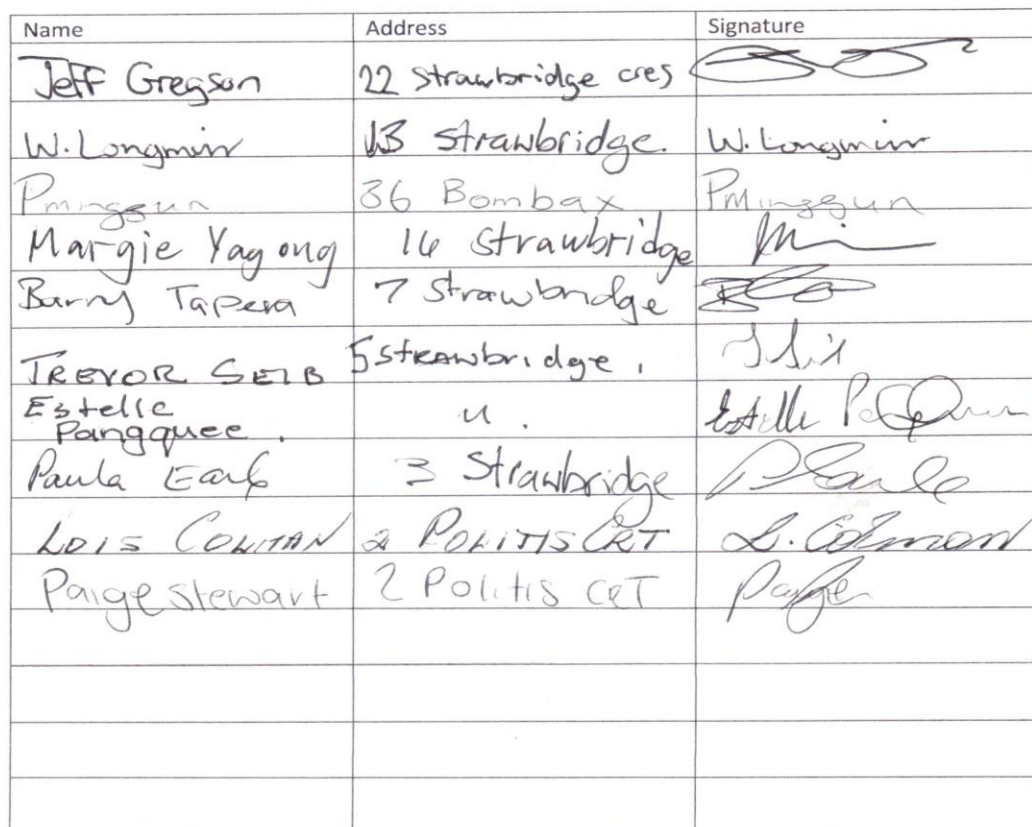 Name Address Signature
Jeff Gregson 22 Strawbridge cres
W. Longmir 13 Strawbridge. W. Longmir
Pminggun 36 Bombax PMinggun
Margie Yagong 16 Strawbridge
Barry Tapera 7 Strawbridge
TREVOR SEIB 5 STRAWbridge.
Estelle
Pangquee. u. Estelle
Paula Earl 3 Strawbridge
LOIS COLMAN 2 POLITIS CRT L. Colman
Paige Stewart 2 Politis CRT Paige